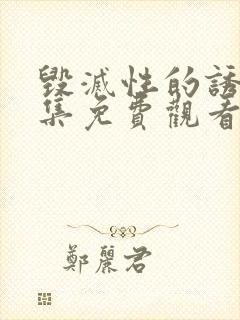 毀滅性的誘
集免費觀看
鄭麗君